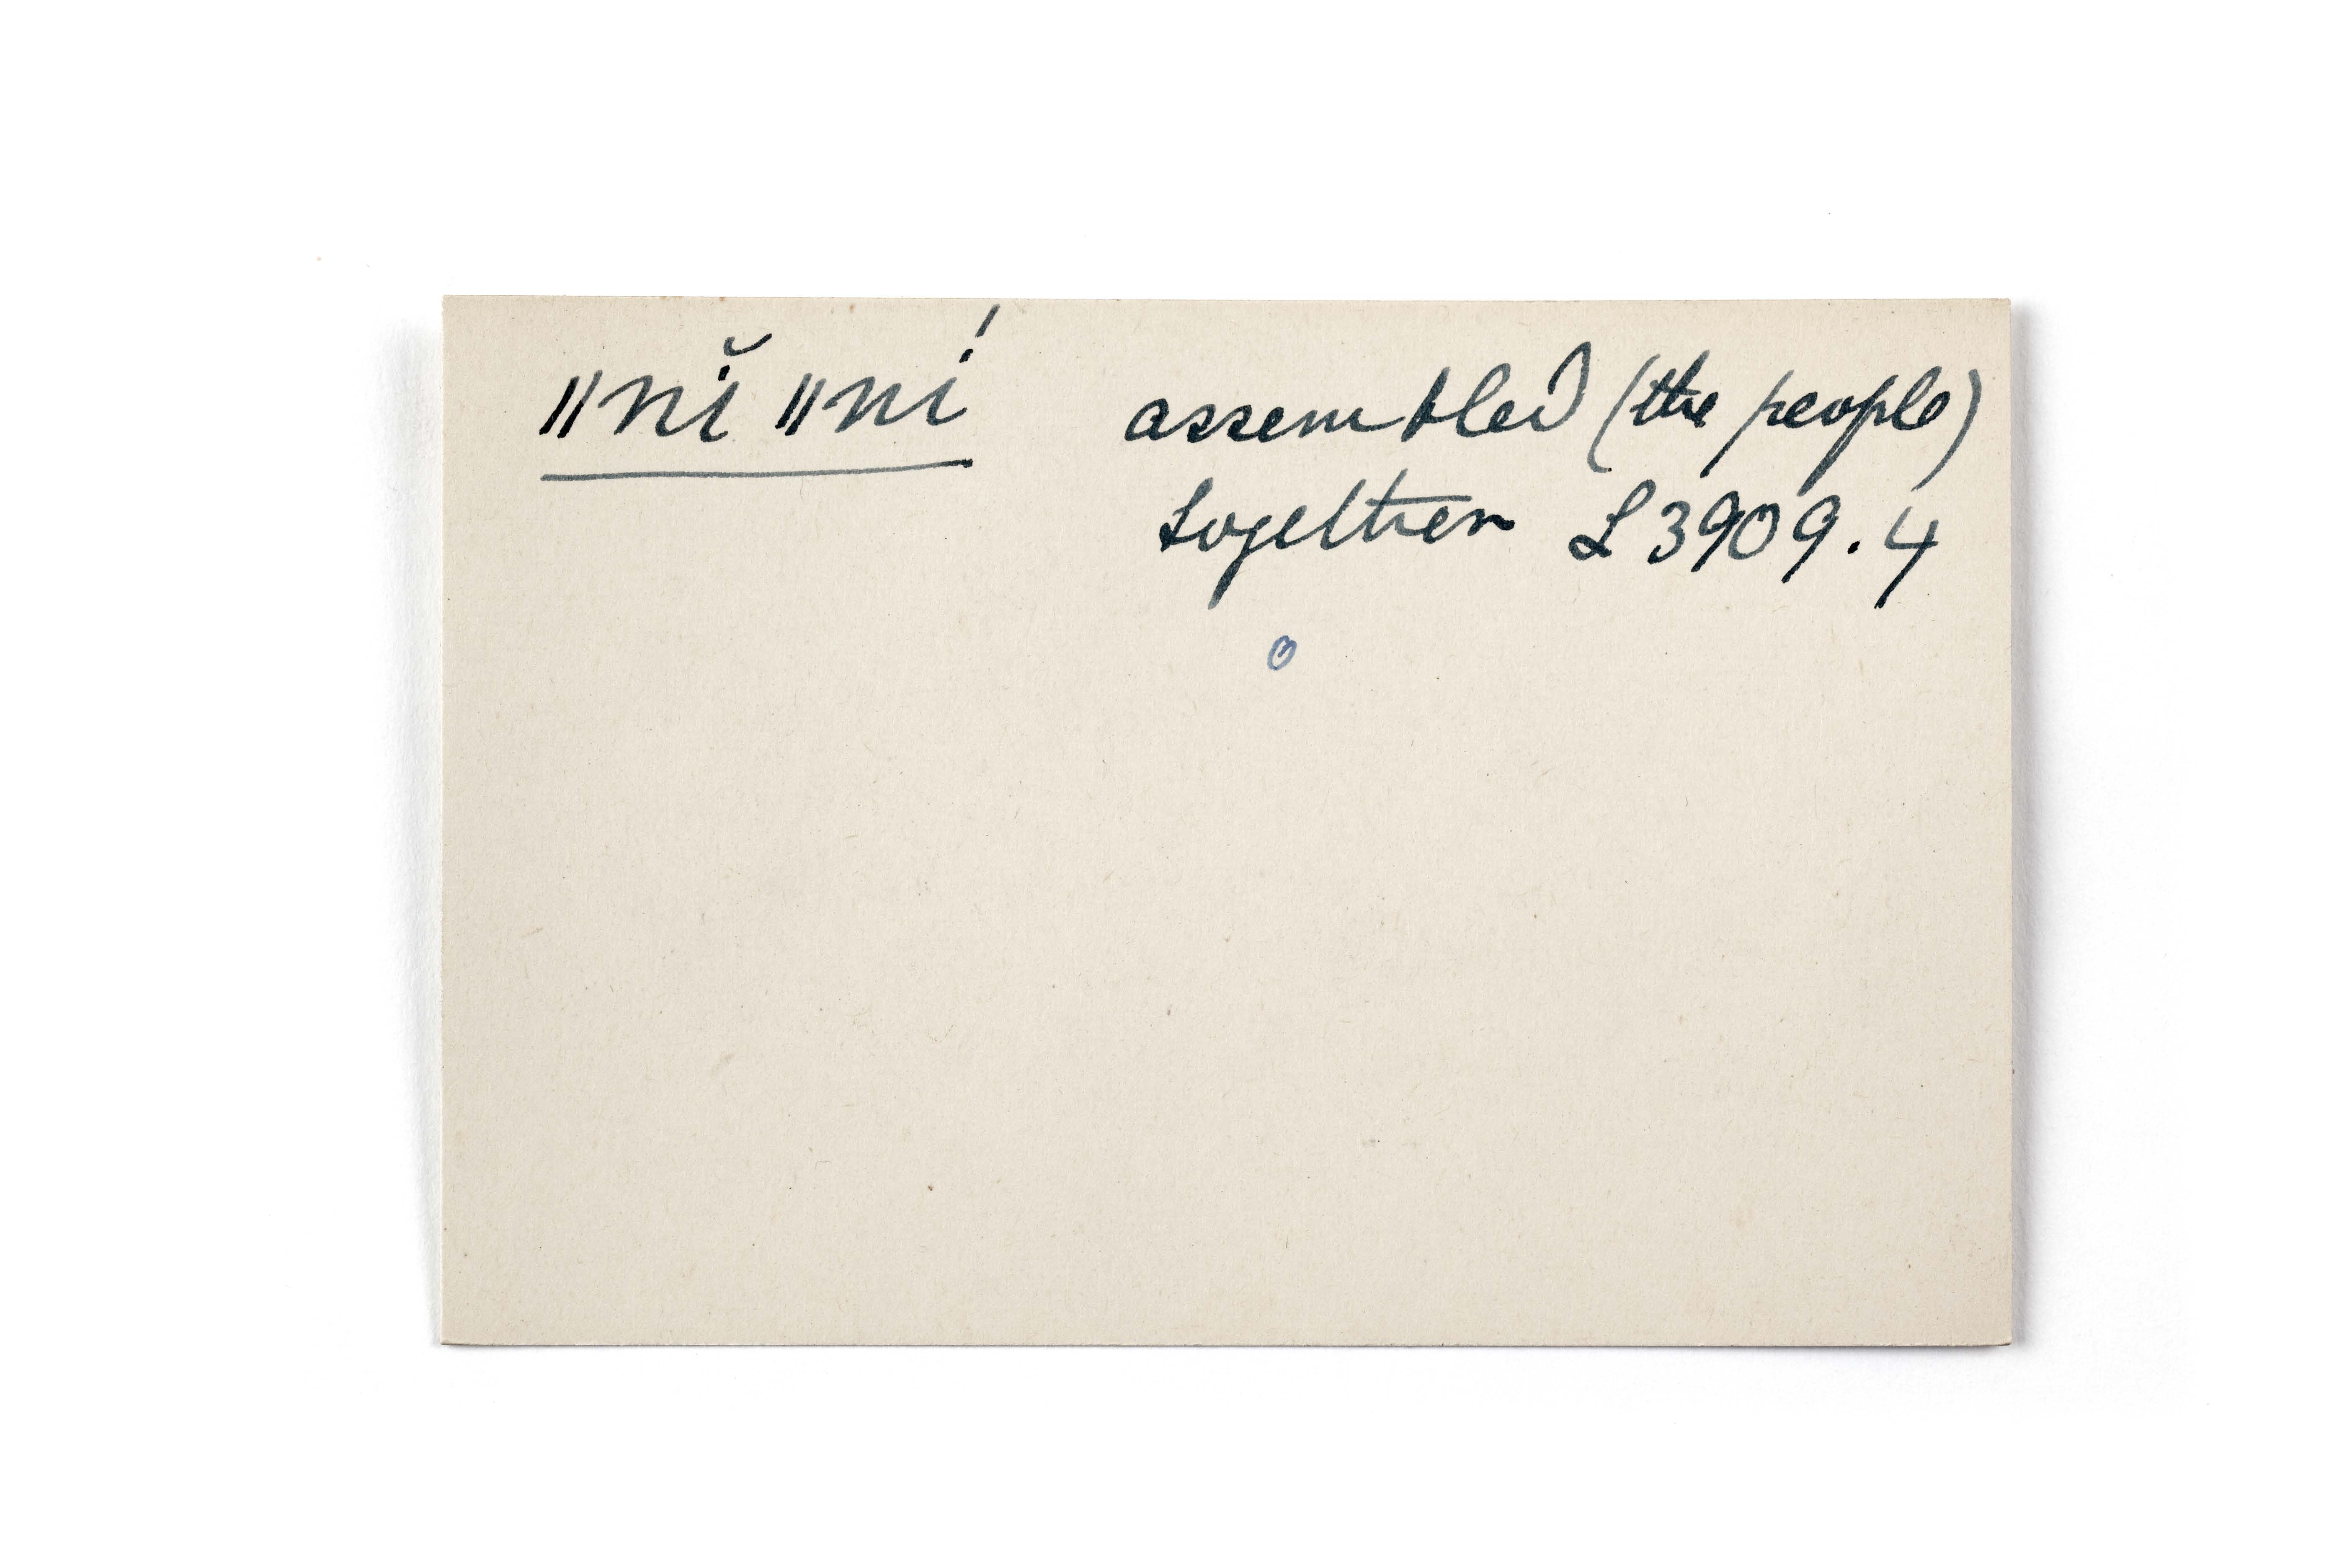 ǁnĭ ǁní assembled (the people)
together L 3909.4